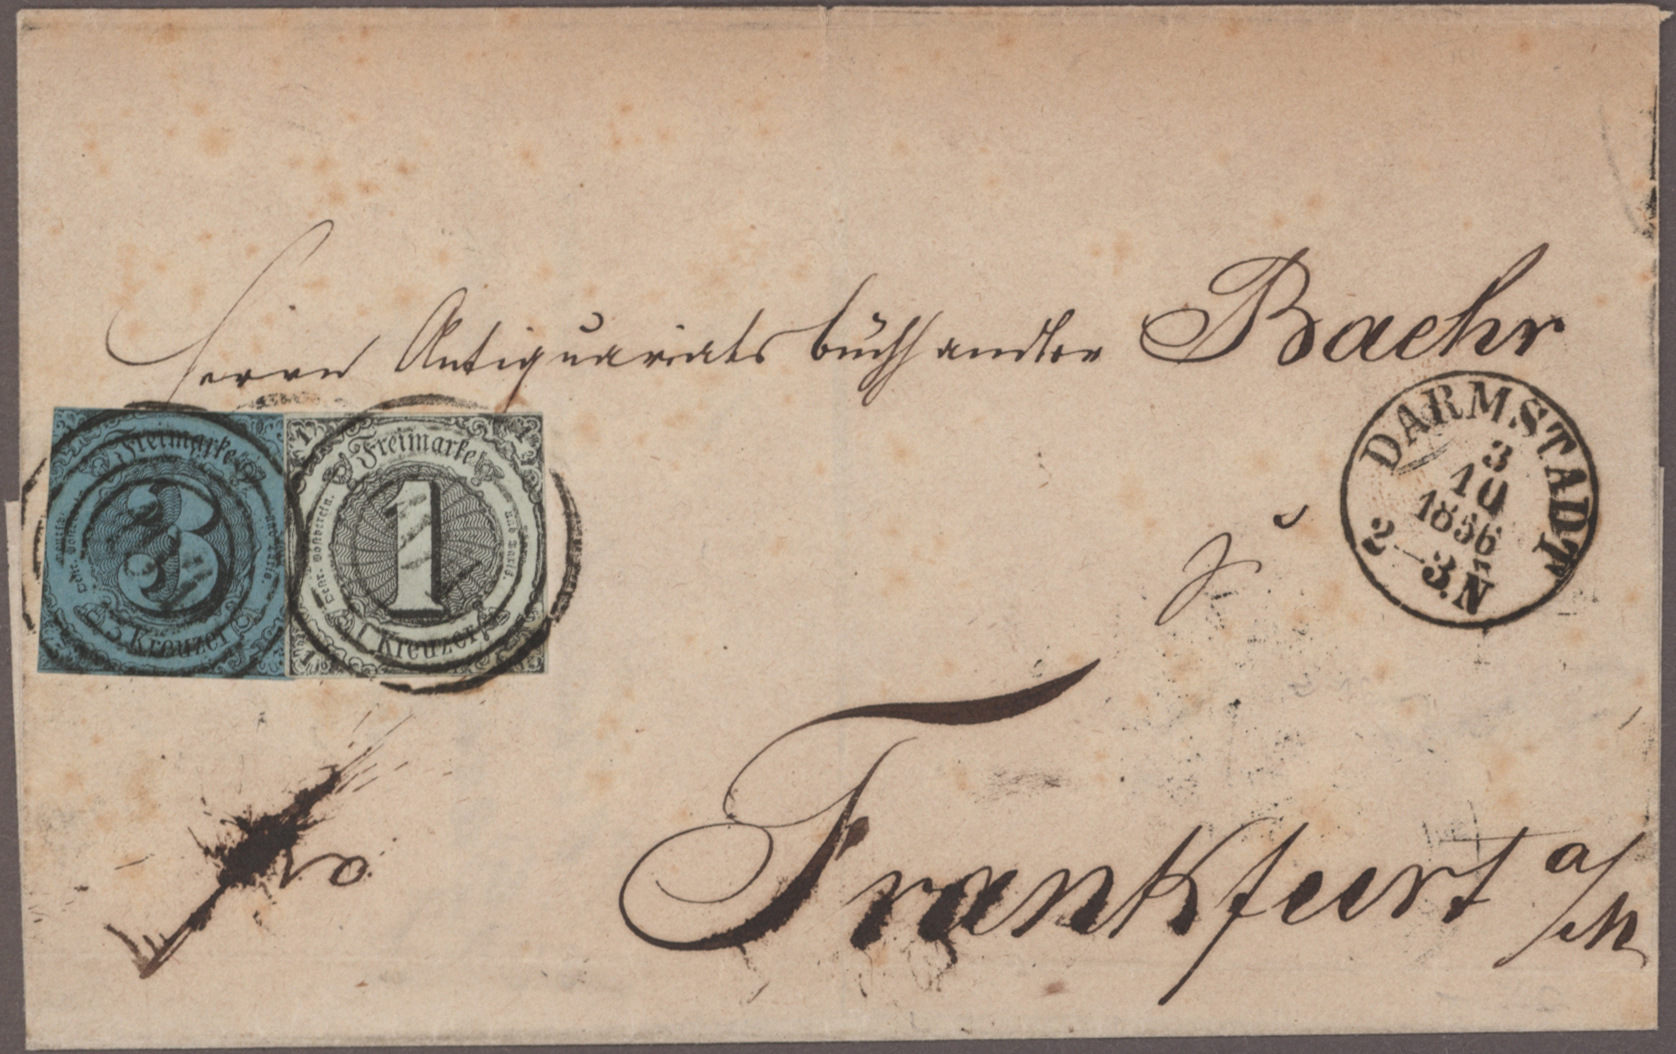 Herrn Antiquariatsbuchhandler Baehr
Freimarke
3
3 Kreuzer
1
Freimarke
1
1
1
1 Kreuzer
DARMSTADT
3
10
1856
2-3.N
zu
fro
Frankfurt a/M